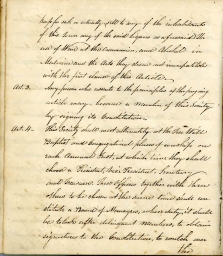 suppose not actually sold to any of the inhabitants
of this town any of the most liquors as afores'd. The
use of Wine at the communion, and Alcohol in
Medicine and the Arts they deem not incompatible
with the first clause of this Article.
Art. 3. Any person who assents to the principles of the foregoing
article may become a member of this Society
by signing its Constitution.
Art. 4. This Society shall meet alternately at the Free Will
Baptist and Congregational places of worship on
each Annual Fast, at which time they shall
choose a President, Vice President, Secretary
and Treasurer. These Officers together with three
others to be chosen at the same time shall con-
stitute a Board of Managers, whose duty it should
be to look after delinquent members, to obtain
signatures to this Constitution, to watch over